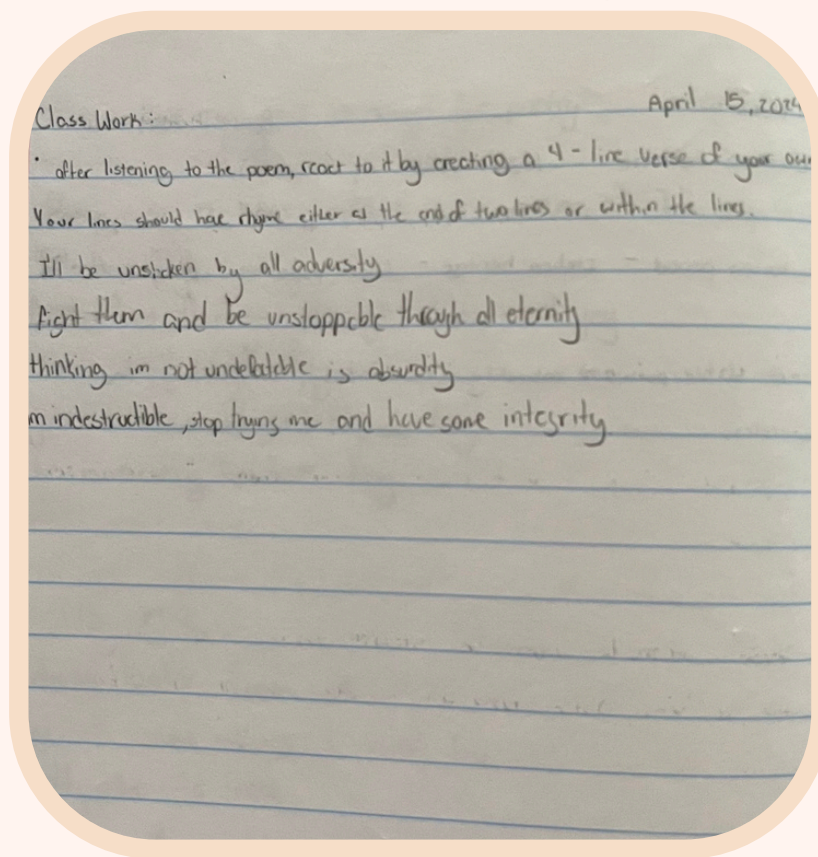 Class Work:
April 15, 2024
• after listening to the poem, react to it by creating a 4-line verse of your own
Your lines should have rhyme either at the end of two lines or within the lines.
I'll be unstricken by all adversity
fight them and be unstoppable through all eternity
thinking im not undefeatable is absurdity
m indestructible, stop trying me and have some integrity